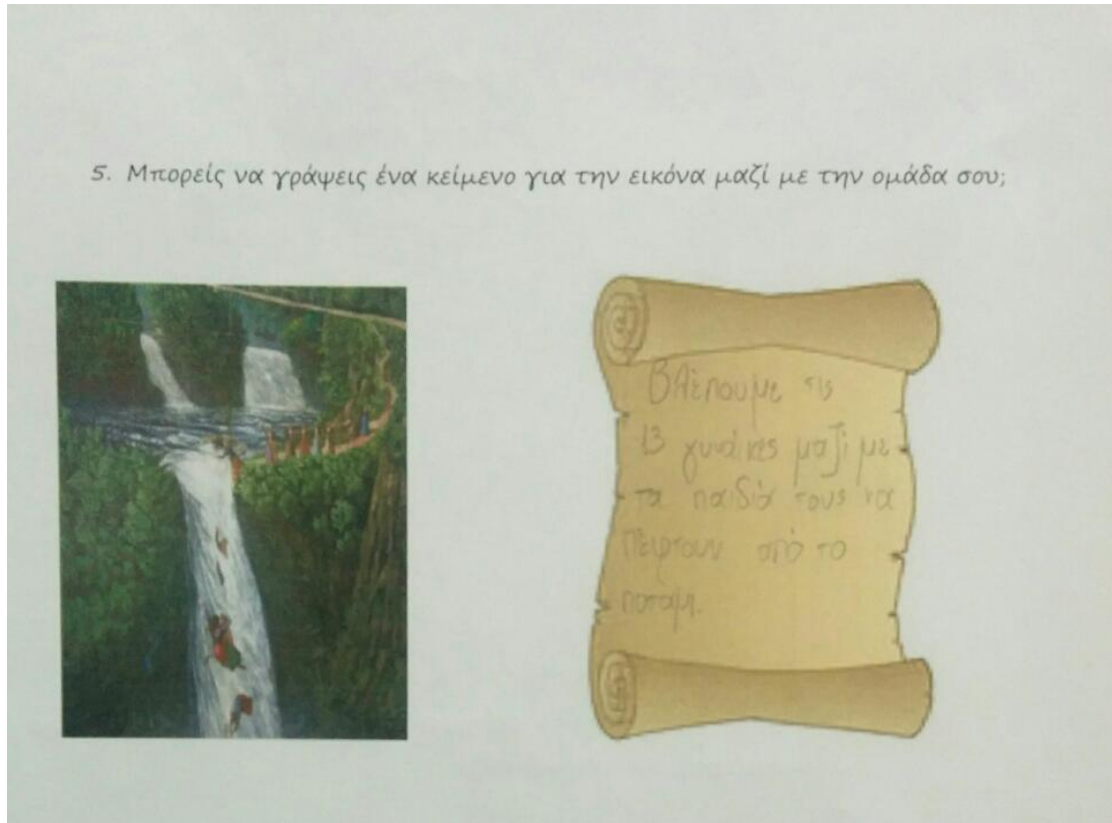 5. Μπορείς να γράψεις ένα κείμενο για την εικόνα μαζί με την ομάδα σου;
Βλέπουμε τις
13 γυναίκες μαζί με
τα παιδιά τους να
πέφτουν από το
ποταμι.